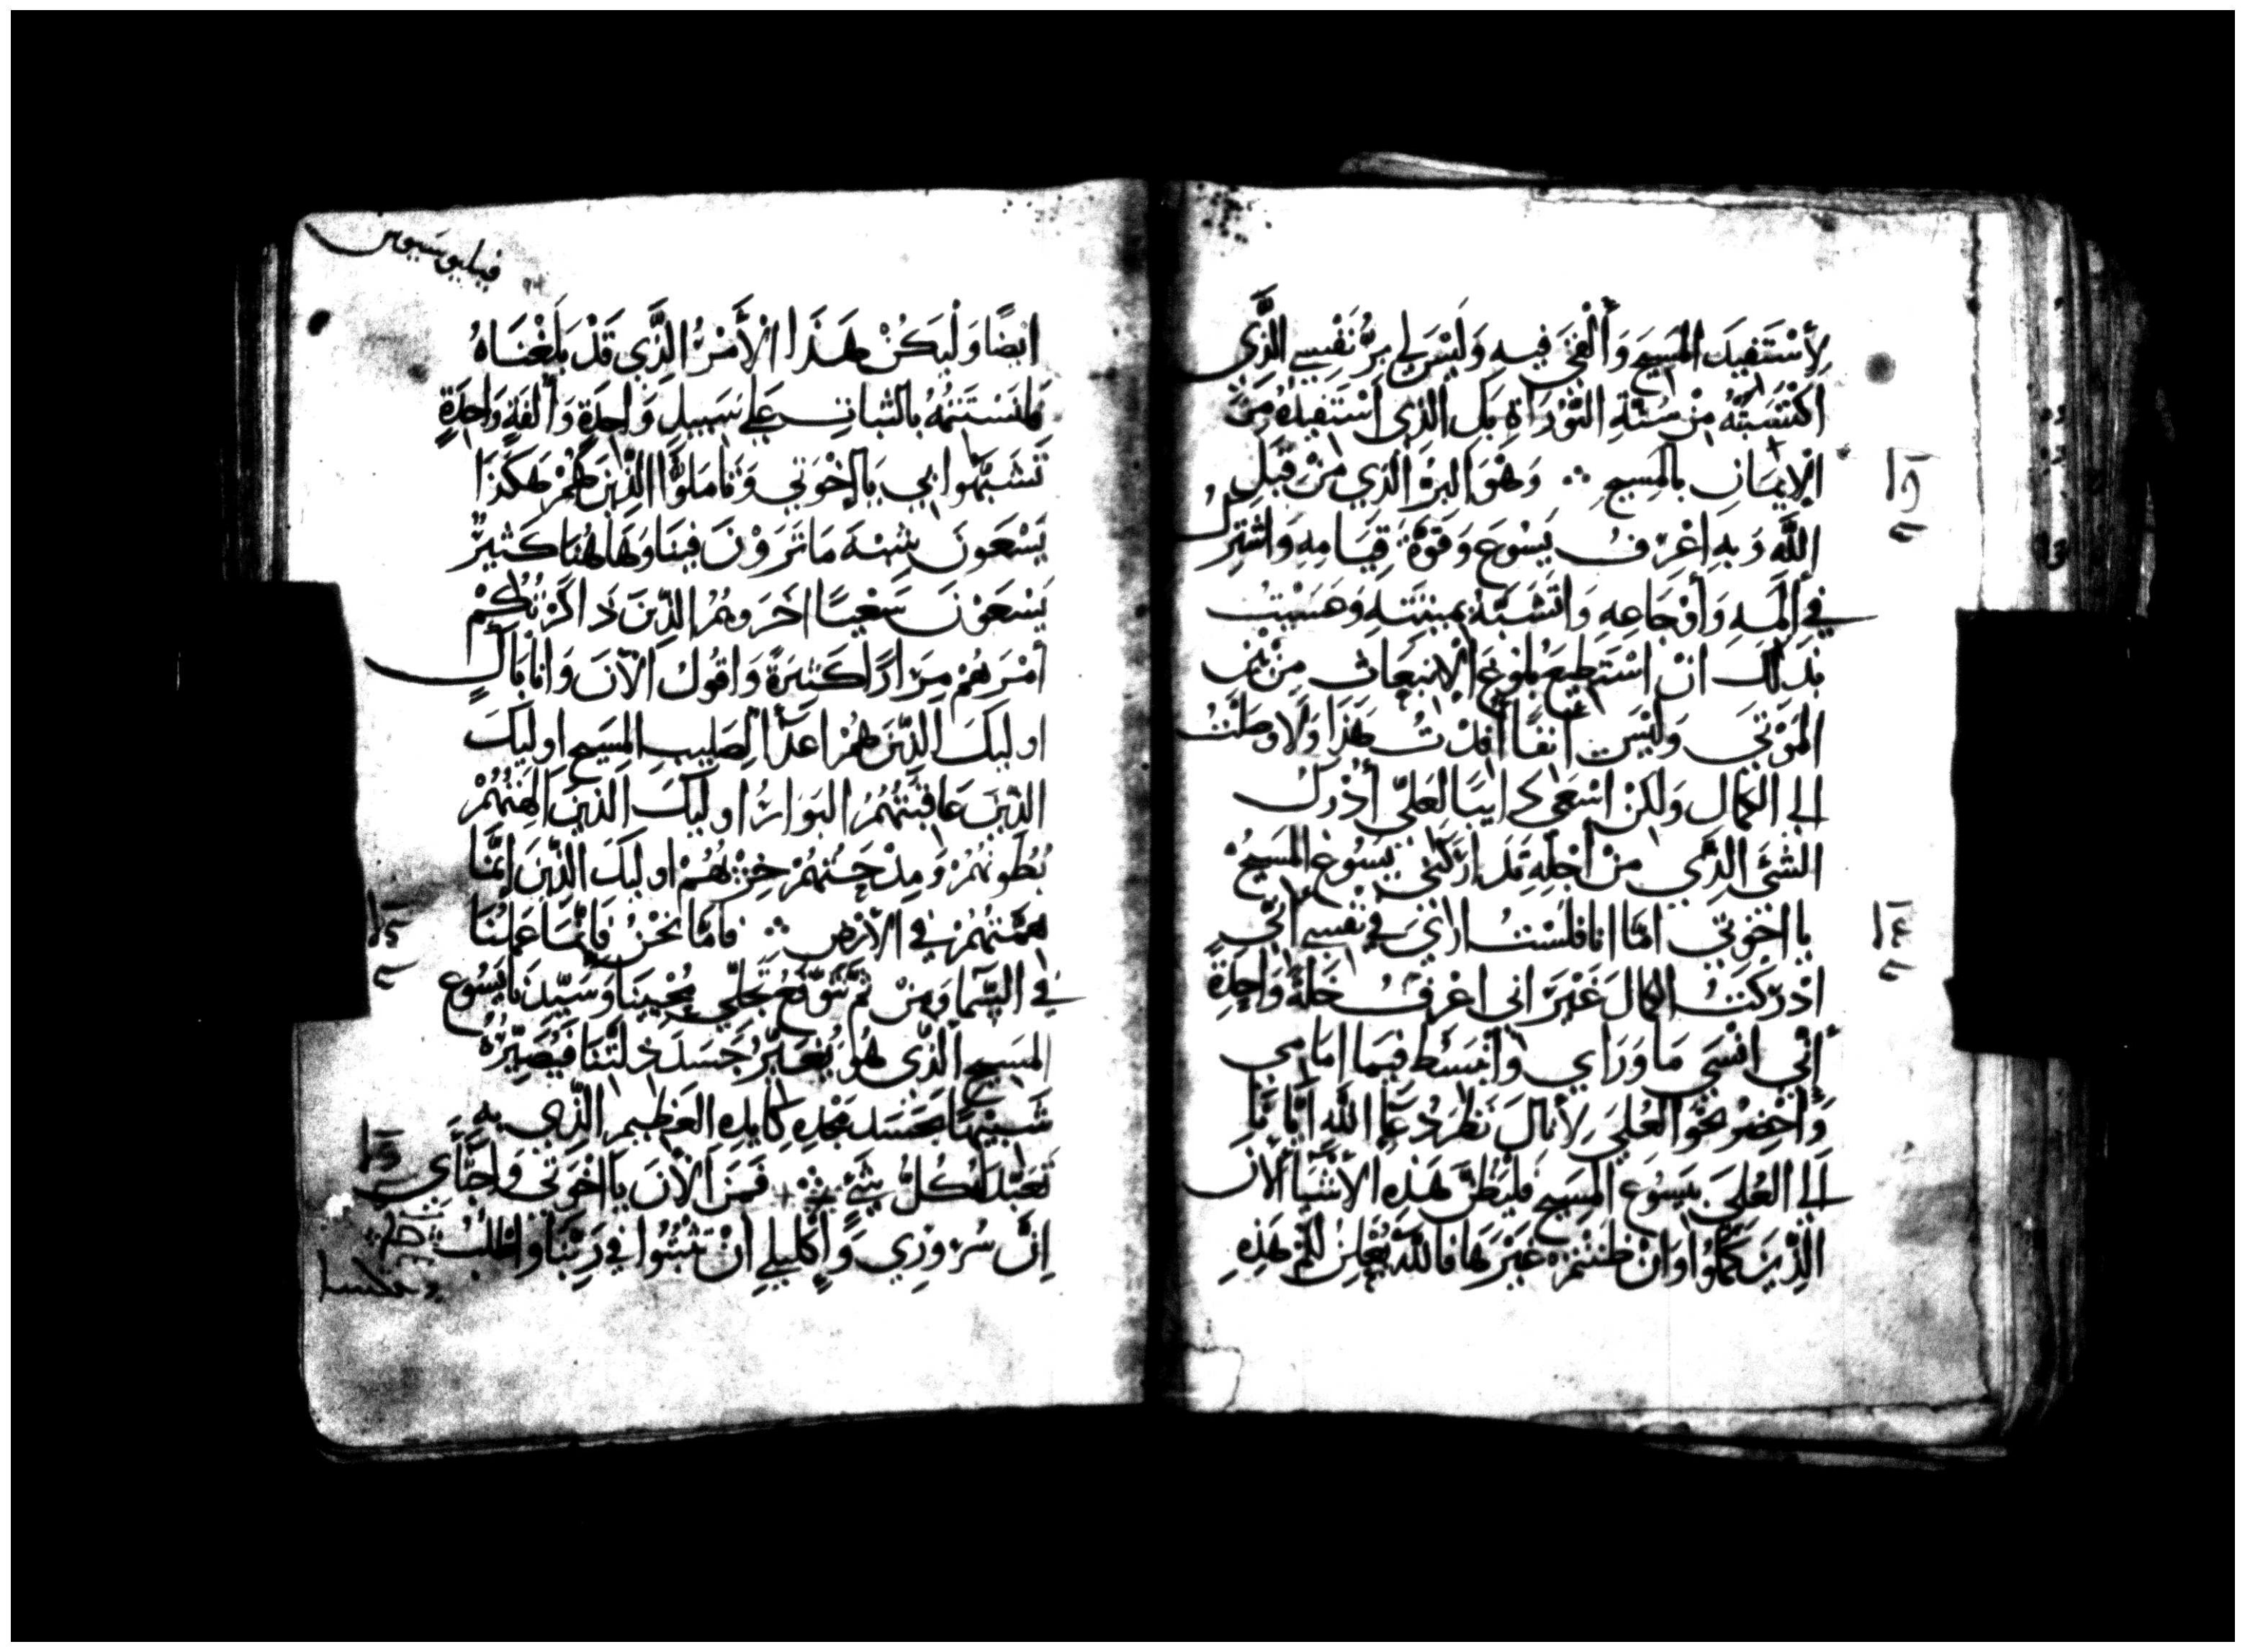 لِأَسْتَفِيدَ المَسِيحَ وَأُلْفَى فِيهِ وَلَيْسَ لِي بِرُّ نَفْسِي الَّذِي
اكْتَسَبْتُهُ مِنْ سُنَّةِ التَّوْرَاةِ بَلِ الَّذِي اسْتَفِيدُهُ مِنَ
الْإِيمَانِ بِالمَسِيحِ ܀ وَهُوَ البِرُّ الَّذِي مِنْ قِبَلِ
اللَّهِ وَبِهِ اعْرِفُ يَسُوعَ وَقُوَّةَ قِيَامِهِ وَاشْتَرِكُ
فِي أَلَمِهِ وَأَوْجَاعِهِ وَاتَشَبَّهُ بِمِيتَتِهِ وَعَسَيْتُ
بِذَلِكَ انْ اسْتَطِيعَ بُلُوغَ الْإِنْبِعَاثِ مِنْ بَيْنِ
المَوْتَى وَلَيْسَ انِفًا أَفَدْتُ هَذَا وَلَا وَصَلْتُ
الَى الكَمَالِ وَلَكِنْ اسْعَى دَايِبًا لَعَلِّي أُدْرِكُ
الشَّئَ الَّذِي مِنْ أَجْلِهِ قَدْ ادْرَكَنِي يَسُوعُ المَسِيحُ
يا اخْوَتِي امَّا انا فَلَسْتُ ارَى فِي نَفْسِي انِّي
ادْرَكْتُ الكَمَالَ غَيْرَ انِّي اعْرِفُ خَلَّةً وَاحِدَةً
أَنِّي انْسَى مَا وَرَاي وَأَنْبَسِطُ فِيمَا امَامِي
وَأَحْضِرُ نَحْوَ العُلَى لِأَنَالَ نَظَرَ دُعَا اللَّهِ أَيَّانَا
الَى العُلَى بِيَسُوعَ المَسِيحِ فَلْيَظُنَّ هَذِهِ الأَشْيَا أَلْآنَ
الَّذِينَ كَمُلُوا وَانْ ظَنَنْتُمْ غَيْرَهَا فَاللَّهُ يُعْلِنُ لَكُمْ هَذِهِ
فيليبوسيوس
ايضًا وَلْيَكُنْ هَذَا الْأَمْرُ الَّذِي قَدْ بَلَغْنَاهُ
فَلْنَسْتَتِمَّهُ بِالثَّبَاتِ عَلَى سَبِيلٍ وَاحِدَةٍ وَأُلْفَةٍ وَاحِدَةٍ
تَشَبَّهُوا بِي يَا إِخْوَتِي وَتَأَمَّلُوا الَّذِينَ هُمْ هَكَذَا
يَسْعَونَ شِبْهَ مَا تَرَوْنَ فِينَا وَهَا هُنَا كَثِيرٌ
يَسْعَوْنَ سَعْيًا اخَرَ وَهُمُ الَّذِينَ ذَاكَرْتُكُمْ
امْرَهُمْ مِرَارًا كَثِيرَةً وَاقُولُ الْآنَ وَانَا بَاكٍ
اوليكَ الَّذِينَ هُمْ اعْدَا لِصَلِيبِ المَسِيحِ اوليكَ
الَّذِينَ عَاقِبَتُهُمُ البَوَارُ اوليكَ الَّذِينَ الَهُهُمْ
بُطُونُهُمْ وَمِدْحَتُهُمْ خِزْيُهُمْ اوليكَ الَّذِينَ إِنَّمَا
هِمَّتُهُمْ فِي الْأَرْضِ ܀ فَامَّا نَحْنُ فَإِنَّمَا عَمَلُنَا
فِي السَّمَا وَمِنْ ثَمَّ نَتَوَقَّعُ تَجَلِّي مُحْيِينَا وَسَيِّدِنَا يَسُوعَ
المَسِيحِ الَّذِي هُوَ يُغَيِّرُ جَسَدَ ذِلَّتِنَا فَيُصَيِّرُهُ
شَبِيهًا بِجَسَدِ مَجْدِهِ كَايدِهِ العَظِيمِ الَّذِي بِهِ
تَعَبَّدَ لَهُ كُلُّ شَيْءٍ ܀ فَمِنَ الْآنَ يَا اخْوَتِي وَاحِبَّايَ
انَّ سُرُورِي وَإِكْلِيلِي انْ تَثْبُتُوا فِي رَبِّنَا وَاطْلُبُ